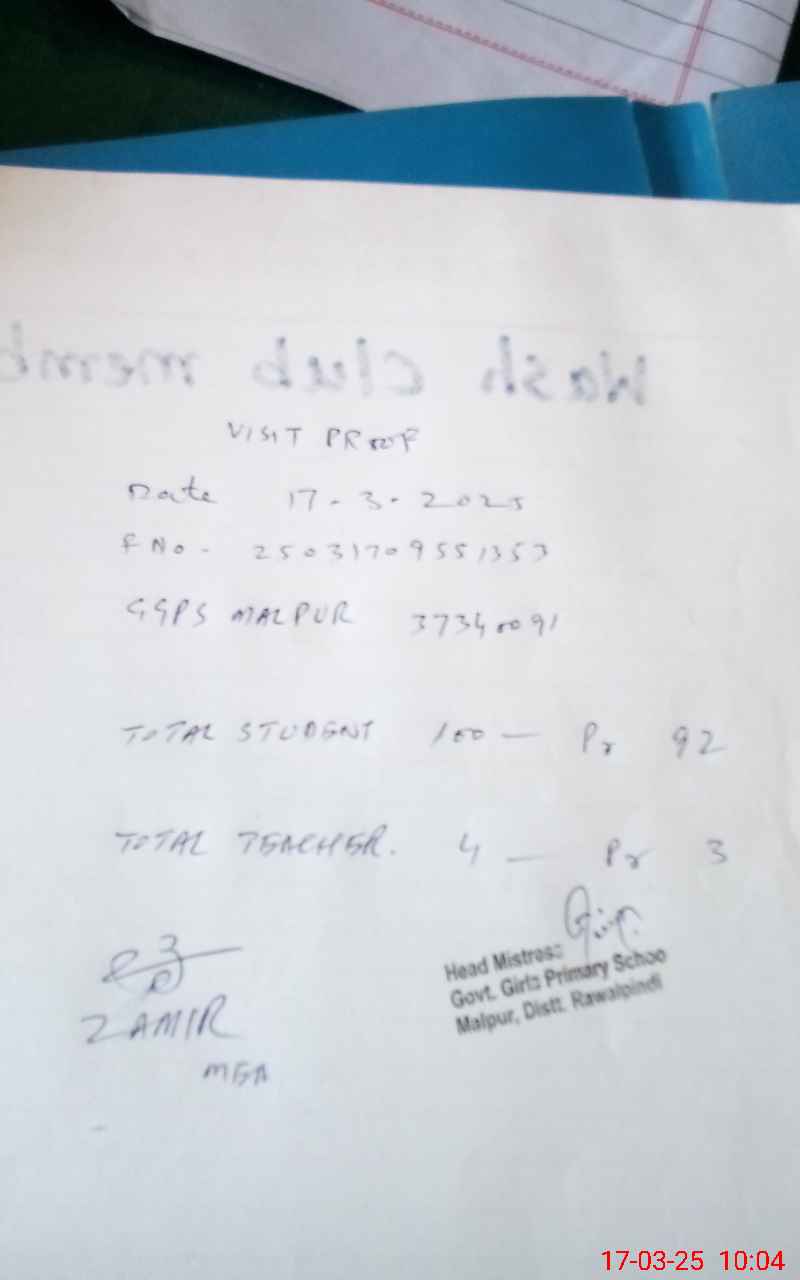 Wash club memb
VISIT PROOF
Date 17-3-2025
F No- 25031709551353
GGPS MALPUR 37340091
TOTAL STUDENT 100 — Pr 92
TOTAL TEACHER. 4 — Pr 3
Head Mistress
Govt. Girls Primary Schoo
Malpur, Distt. Rawalpindi
ZAMIR
MEA
17-03-25 10:04